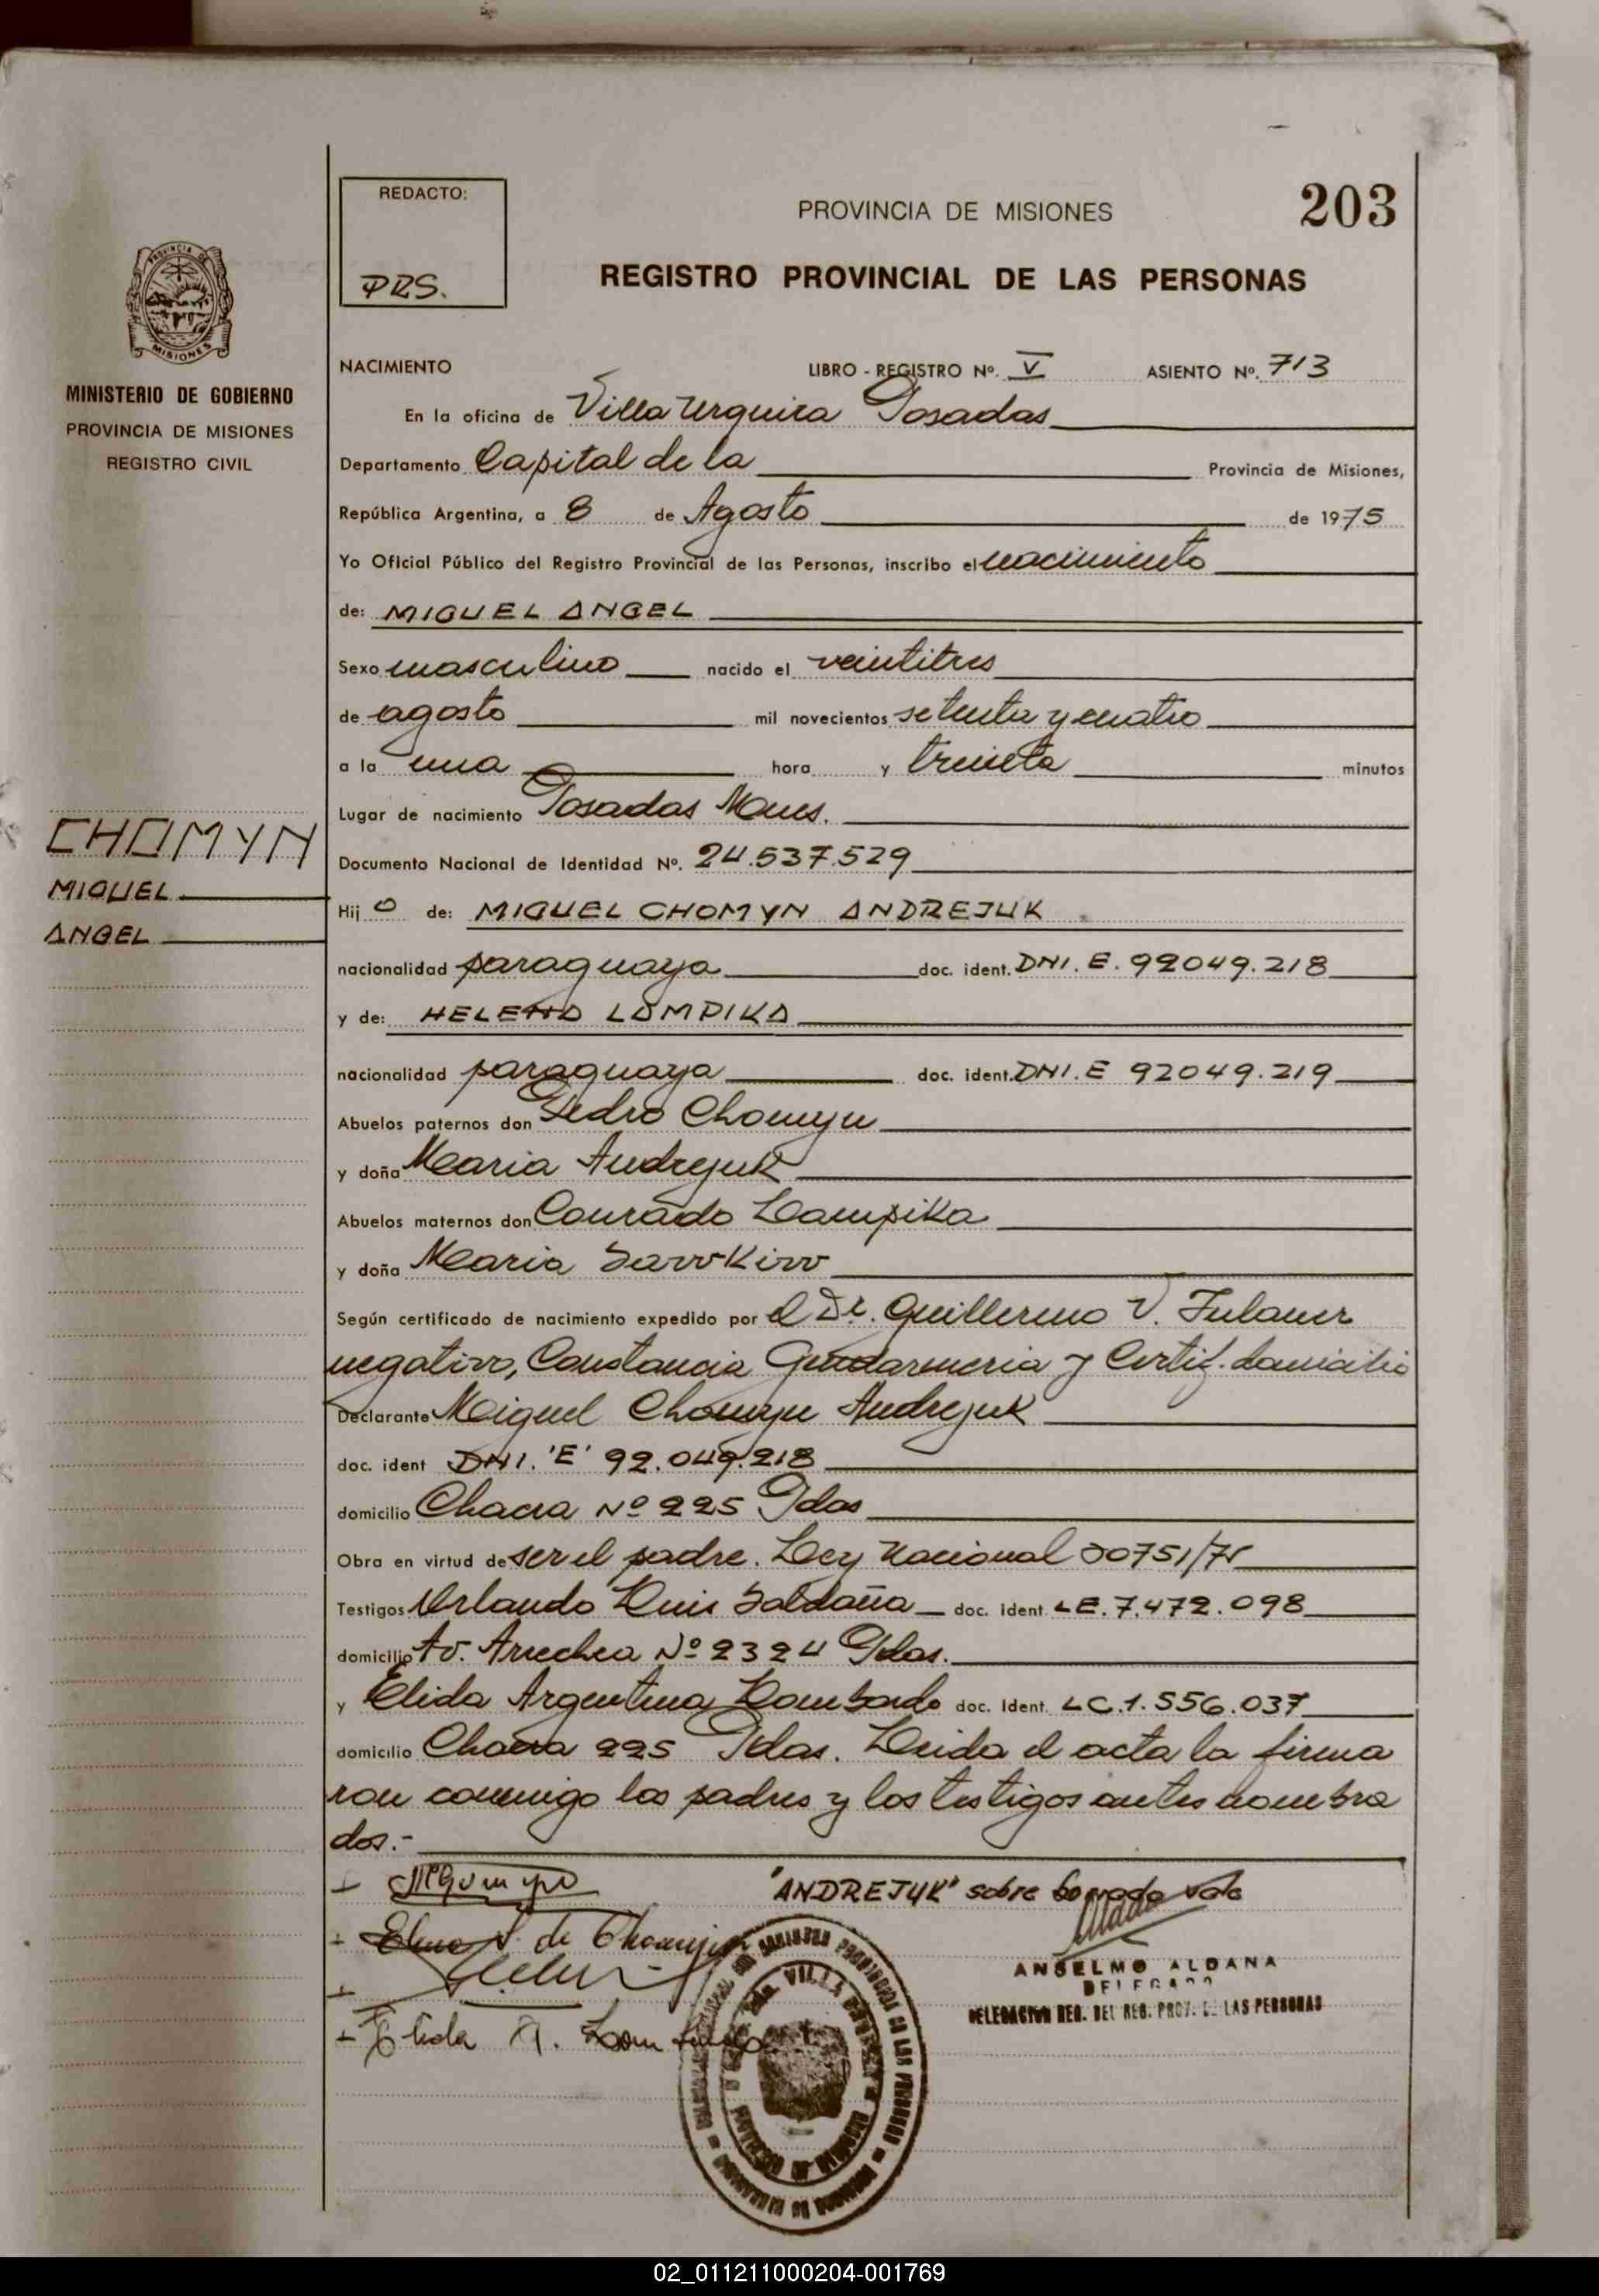 REDACTO:
PRS.
PROVINCIA DE MISIONES
203
REGISTRO PROVINCIAL DE LAS PERSONAS
PROVINCIA DE
MISIONES
MINISTERIO DE GOBIERNO
PROVINCIA DE MISIONES
REGISTRO CIVIL
NACIMIENTO LIBRO - REGISTRO Nº. V ASIENTO Nº. 713
En la oficina de Villa Urquiza Posadas
Departamento Capital de la Provincia de Misiones,
República Argentina, a 8 de Agosto de 1975
Yo Oficial Público del Registro Provincial de las Personas, inscribo el nacimiento
de: MIGUEL ANGEL
Sexo masculino nacido el veintitres
de agosto mil novecientos setenta y cuatro
a la una hora y treinta minutos
Lugar de nacimiento Posadas Mnes.
CHOMYN
MIGUEL
ANGEL
Documento Nacional de Identidad Nº. 24.537.529
Hij o de: MIGUEL CHOMYN ANDREJUK
nacionalidad paraguaya doc. ident. DNI. E. 92049.218
y de: HELENA LAMPIKA
nacionalidad paraguaya doc. ident. DNI. E 92049.219
Abuelos paternos don Pedro Chomyn
y doña Maria Andrejuk
Abuelos maternos don Conrado Lampika
y doña Maria
Según certificado de nacimiento expedido por el Dr. Guillermo V. Fulaner
negativo, Constancia Gendarmeria y Certif. domicilio
Declarante Miguel Chomyn Andrejuk
doc. ident DNI. 'E' 92.049.218
domicilio Chacra Nº 225 Pdas
Obra en virtud de ser el padre. Ley Nacional 20751/74
Testigos Orlando Luis Saldaña doc. ident. LE. 7.472.098
domicilio Av. Arrechea Nº 2324 Pdas.
y Elida Argentina Lombardo doc. Ident. LC. 1.556.037
domicilio Chacra 225 Pdas. Leida el acta la firma
ron conmigo los padres y los testigos antes nombra
dos.-
"ANDREJUK" sobre borrado vale
de Chomyn
ANSELMO ALDANA
DELEGADO
DELEGACION REG. DEL REG. PROV. D. LAS PERSONAS
Elida A. Lombardo
02_011211000204-001769